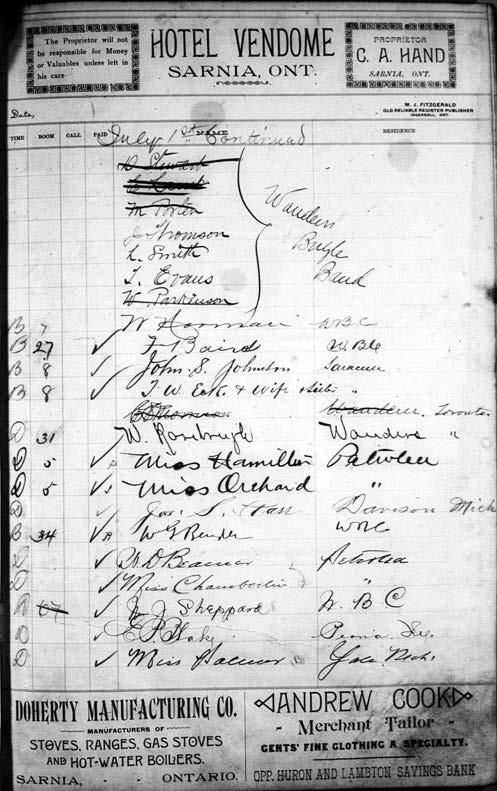 The Proprietor will not
be responsible for Money
or Valuables unless left in
his care
HOTEL VENDOME
SARNIA, ONT.
PROPRIETOR
C. A. HAND
SARNIA, ONT.
Date,
M. J. FITZGERALD
OLD RELIABLE REGISTER PUBLISHER
INGERSOLL, ONT.
TIME ROOM CALL PAID NAME RESIDENCE
July 1st Continued
D Stewart
M Porter
J Thomson
L. Smith
T. Evans
W. Parkinson
Wanderers
Bugle
Band
B 7 W Harman WBC
B 27 F Baird W.B.C
B 8 John S. Johnston
B 8 T. W. Eck & Wife "
Toronto
D 31 W. Rosebrugh Wanderers "
D 5 Miss Hamilton Petrolea
D 5 Miss Orchard "
D Jas. S. Davison Mich
B 34 W G Render WBC
D Beamer Petrolea
D Miss Chamberlin "
D 67 J Sheppard W. B C
D E P Blake Peoria
D Miss Palmer Yale Mich.
DOHERTY MANUFACTURING CO.
MANUFACTURERS OF
STOVES, RANGES, GAS STOVES
AND HOT-WATER BOILERS.
SARNIA, - - ONTARIO.
ANDREW COOK
- Merchant Tailor -
GENTS' FINE CLOTHING A SPECIALTY.
OPP. HURON AND LAMBTON SAVINGS BANK